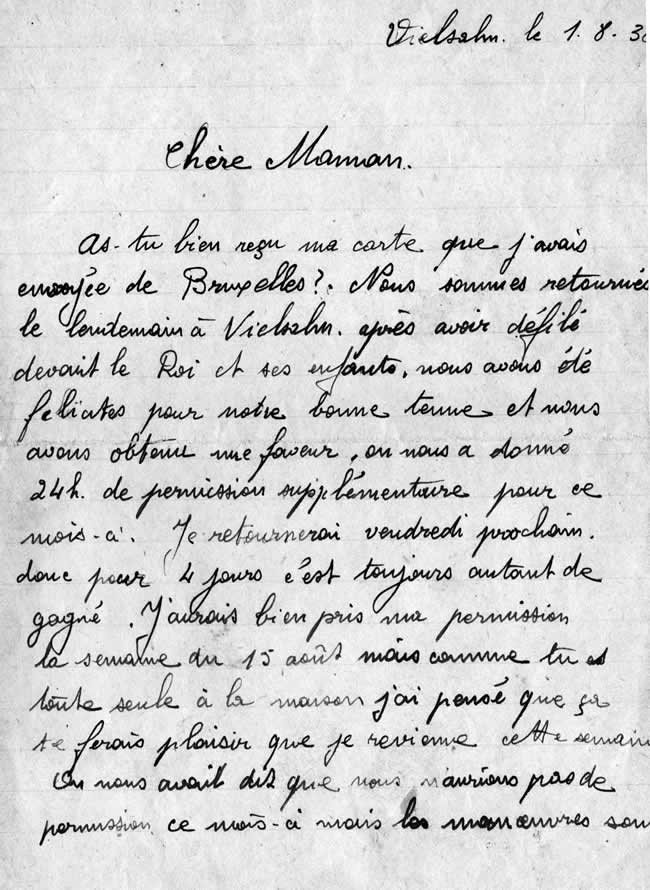 Vielsalm. le 1. 8. 3
Chère Maman.
As-tu bien reçu ma carte que j'avais
envoyée de Bruxelles ?. Nous sommes retournés
le lendemain à Vielsalm. après avoir défilé
devant le Roi et ses enfants, nous avons été
felicités pour notre bonne tenue et nous
avons obtenu une faveur, on nous a donné
24h. de permission supplémentaire pour ce
mois-ci. Je retournerai vendredi prochain.
donc pour 4 jours c'est toujours autant de
gagné. J'aurais bien pris ma permission
la semaine du 15 août mais comme tu es
toute seule à la maison j'ai pensé que ça
te ferais plaisir que je revienne cette semaine
On nous avait dit que nous n'aurions pas de
permission ce mois-ci mais les manœuvres son